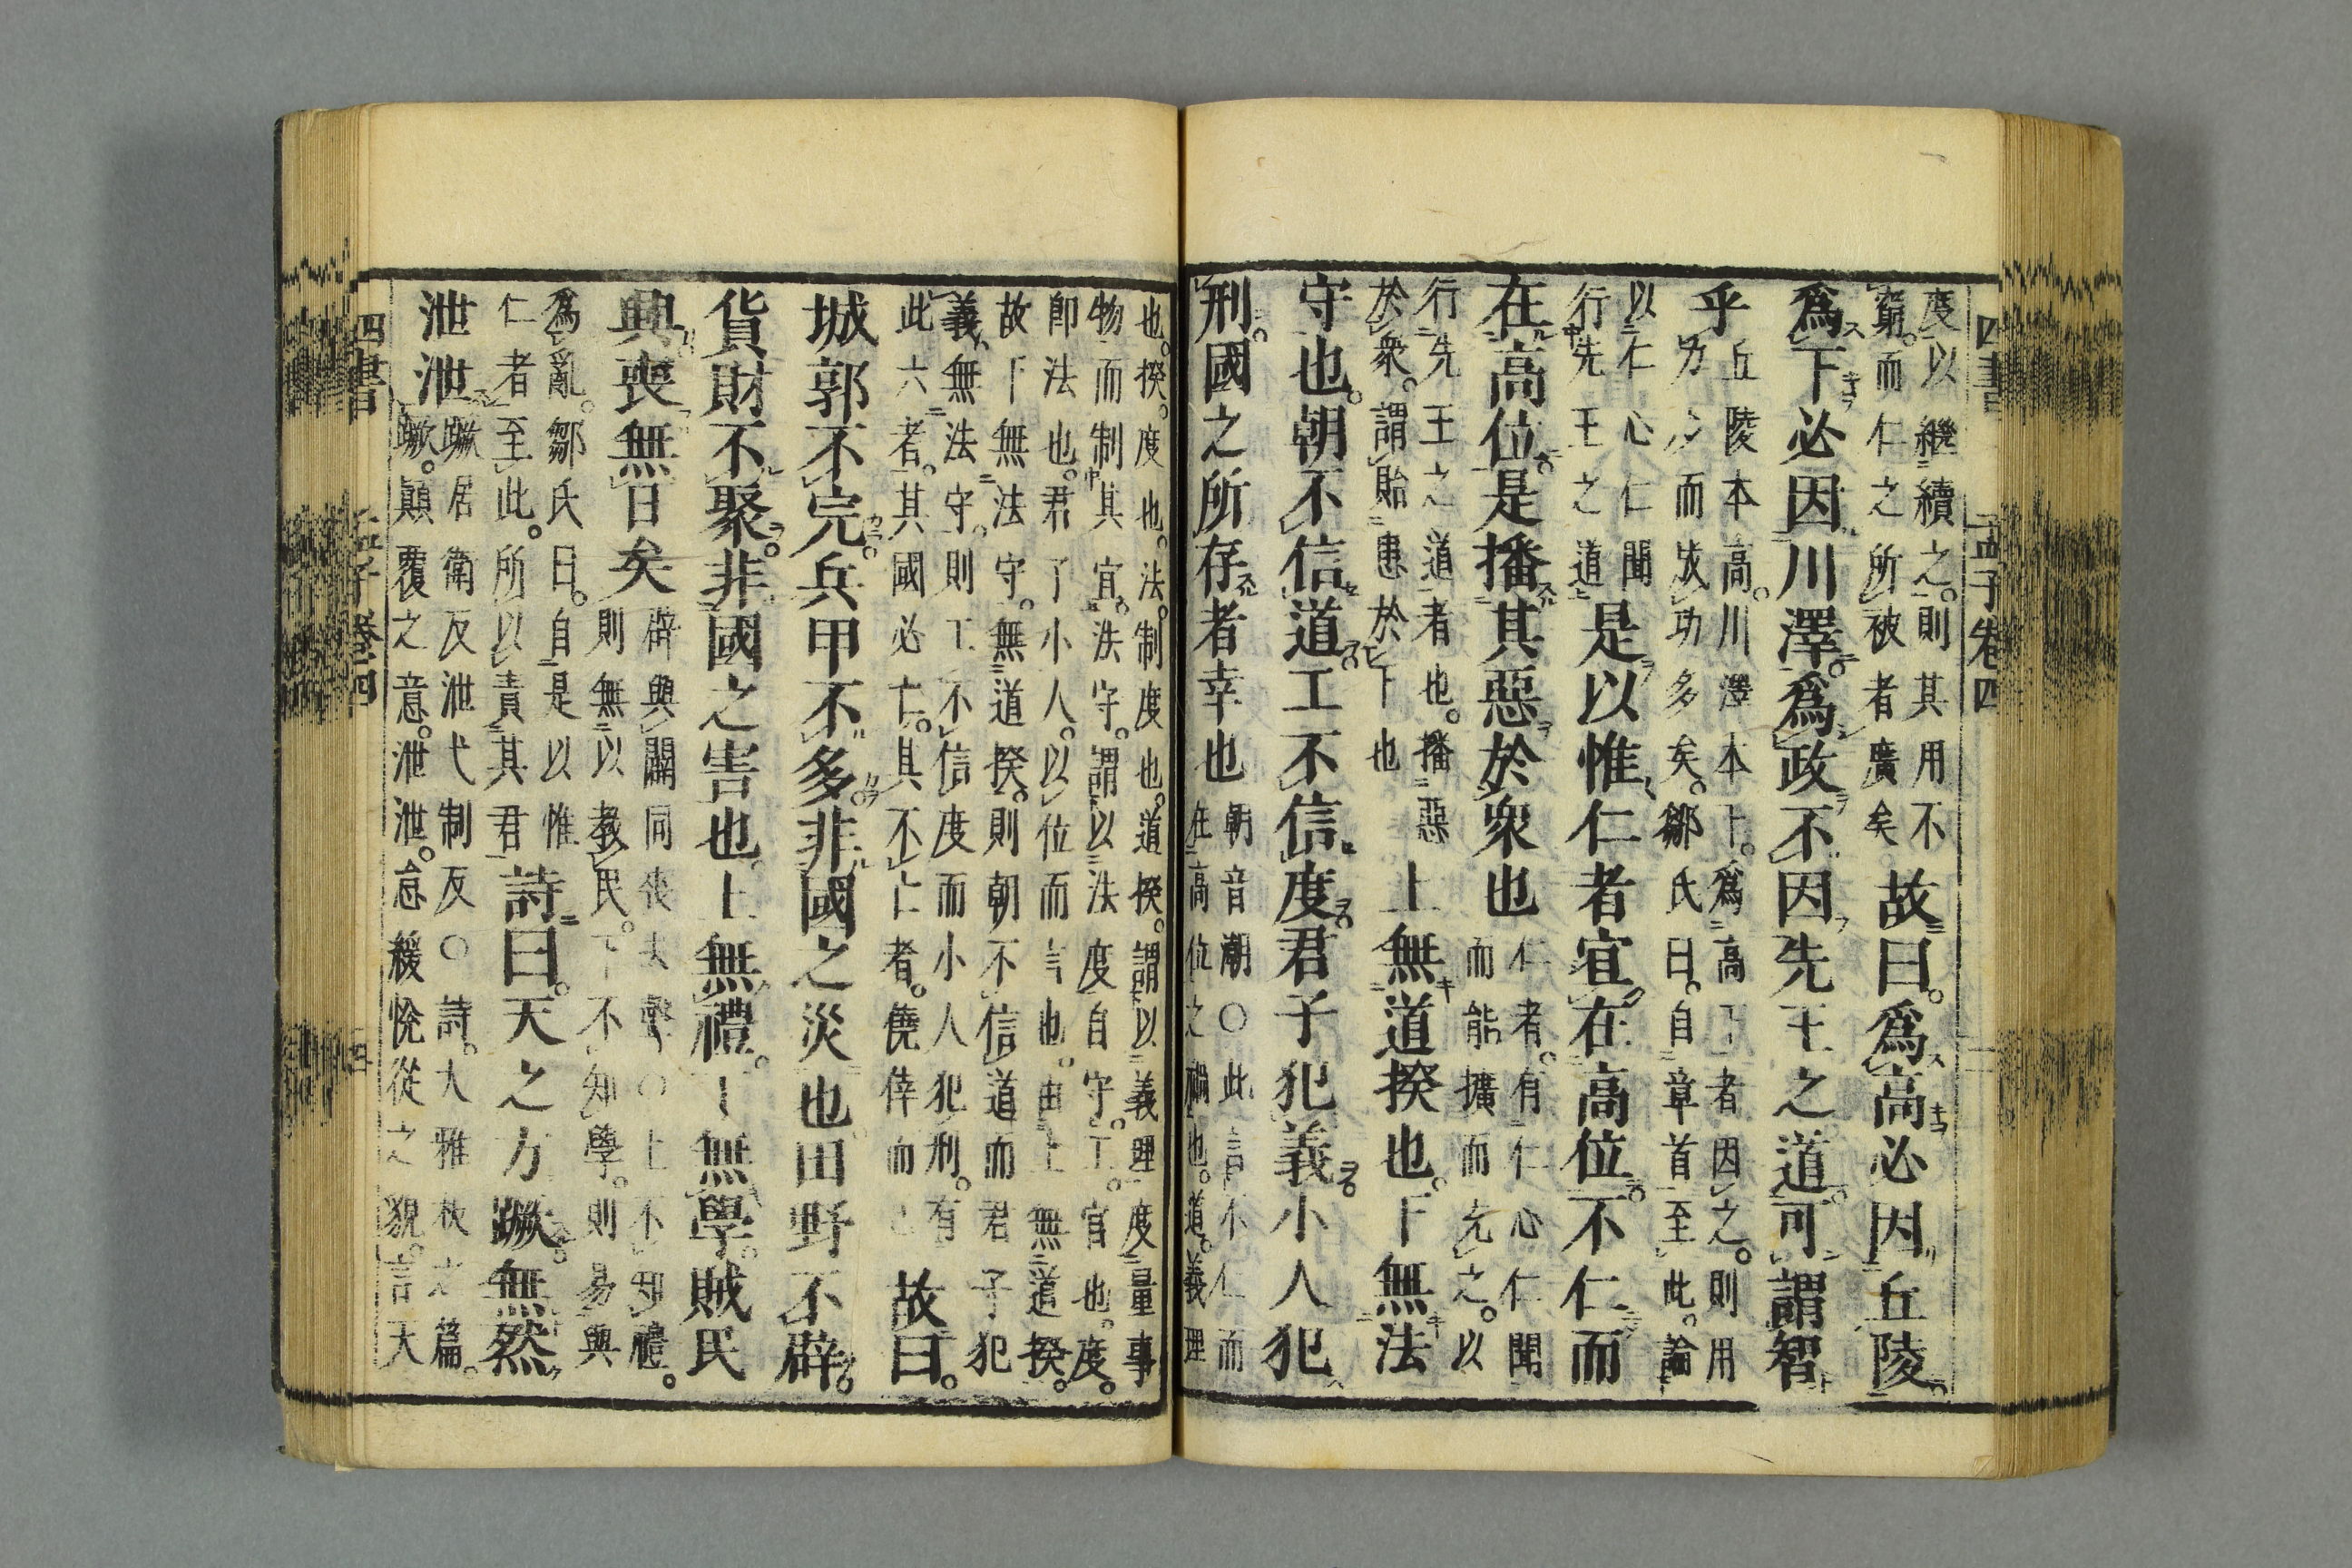 四書 孟子卷四
度以繼續之。則其用不
窮。而仁之所被者廣矣。
故曰。爲高必因丘陵。
爲下必因川澤。爲政不因先王之道。可謂智
乎
丘陵本高。川澤本下。爲高下者因之。則用
力少而成功多矣。鄒氏曰。自章首至此。論
以仁心仁聞
行先王之道
是以惟仁者宜在高位。不仁而
在高位。是播其惡於衆也
仁者。有仁心仁聞
而能擴而充之。以
行先王之道者也。播惡
於衆。謂貽患於下也
上無道揆也。下無法
守也。朝不信道。工不信度。君子犯義。小人犯
刑。國之所存者幸也
朝音潮○此言不仁而
在高位之禍也。道。義理
也。揆。度也。法。制度也。道揆。謂以義理度量事
物而制其宜。法守。謂以法度自守。工。官也。度。
卽法也。君子小人。以位而言也。由上無道揆。
故下無法守。無道揆。則朝不信道而君子犯
義。無法守。則工不信度而小人犯刑。有
此六者。其國必亡。其不亡者。僥倖而已
故曰。
城郭不完。兵甲不多。非國之災也田野不辟。
貨財不聚。非國之害也。上無禮。下無學。賊民
興喪無日矣
辟與闢同喪去聲○上不知禮。
則無以教民。下不知學。則易與
爲亂。鄒氏曰。自是以惟
仁者至此。所以責其君
詩曰。天之方蹶。無然
泄泄
蹶居衛反泄弋制反○詩。大雅板之篇。
蹶。顛覆之意。泄泄。怠緩悅從之貌。言天
四書 孟子卷四